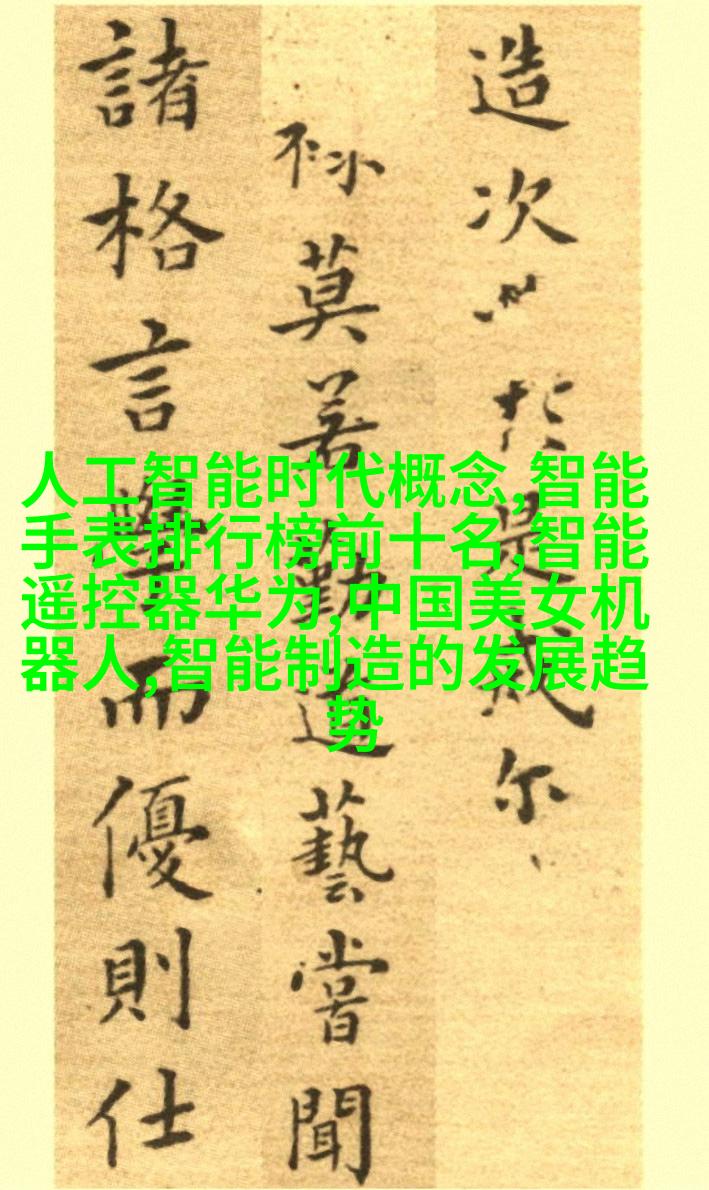 造次於是戒尔
莫若勤造藝嘗聞
諸格言學而優則仕
人工智能时代概念,智能
手表排行榜前十名,智能
遥控器华为,中国美女机
器人,智能制造的发展趋
势